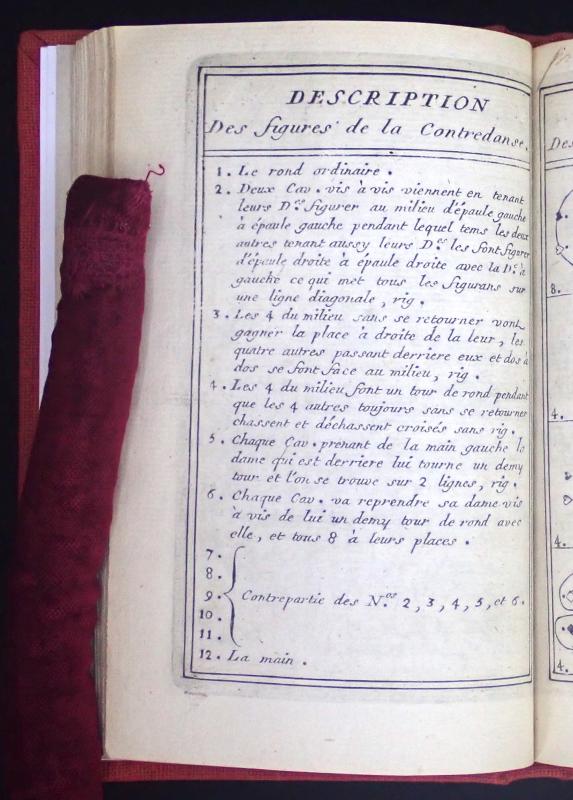 DESCRIPTION
Des figures de la Contredanse.
1. Le rond ordinaire.
2. Deux Cav. vis à vis viennent en tenant
leurs D.es figurer au milieu d'épaule gauche
à épaule gauche pendant lequel tems les deux
autres tenant aussy leurs D.es les font figurer
d'épaule droite à épaule droite avec la D.e à
gauche ce qui met tous les figurans sur
une ligne diagonale, rig.
3. Les 4 du milieu sans se retourner vont
gagner la place à droite de la leur, les
quatre autres passant derriere eux et dos à
dos se font face au milieu, rig.
4. Les 4 du milieu font un tour de rond pendant
que les 4 autres toujours sans se retourner
chassent et déchassent croisés sans rig.
5. Chaque Cav. prenant de la main gauche la
dame qui est derriere lui tourne un demy
tour et l'on se trouve sur 2 lignes, rig.
6. Chaque Cav. va reprendre sa dame vis
à vis de lui un demy tour de rond avec
elle, et tous 8 à leurs places.
7.
8.
9. Contrepartie des N.os 2, 3, 4, 5, et 6.
10.
11.
12. La main.
Des
8.
4.
4.
4.